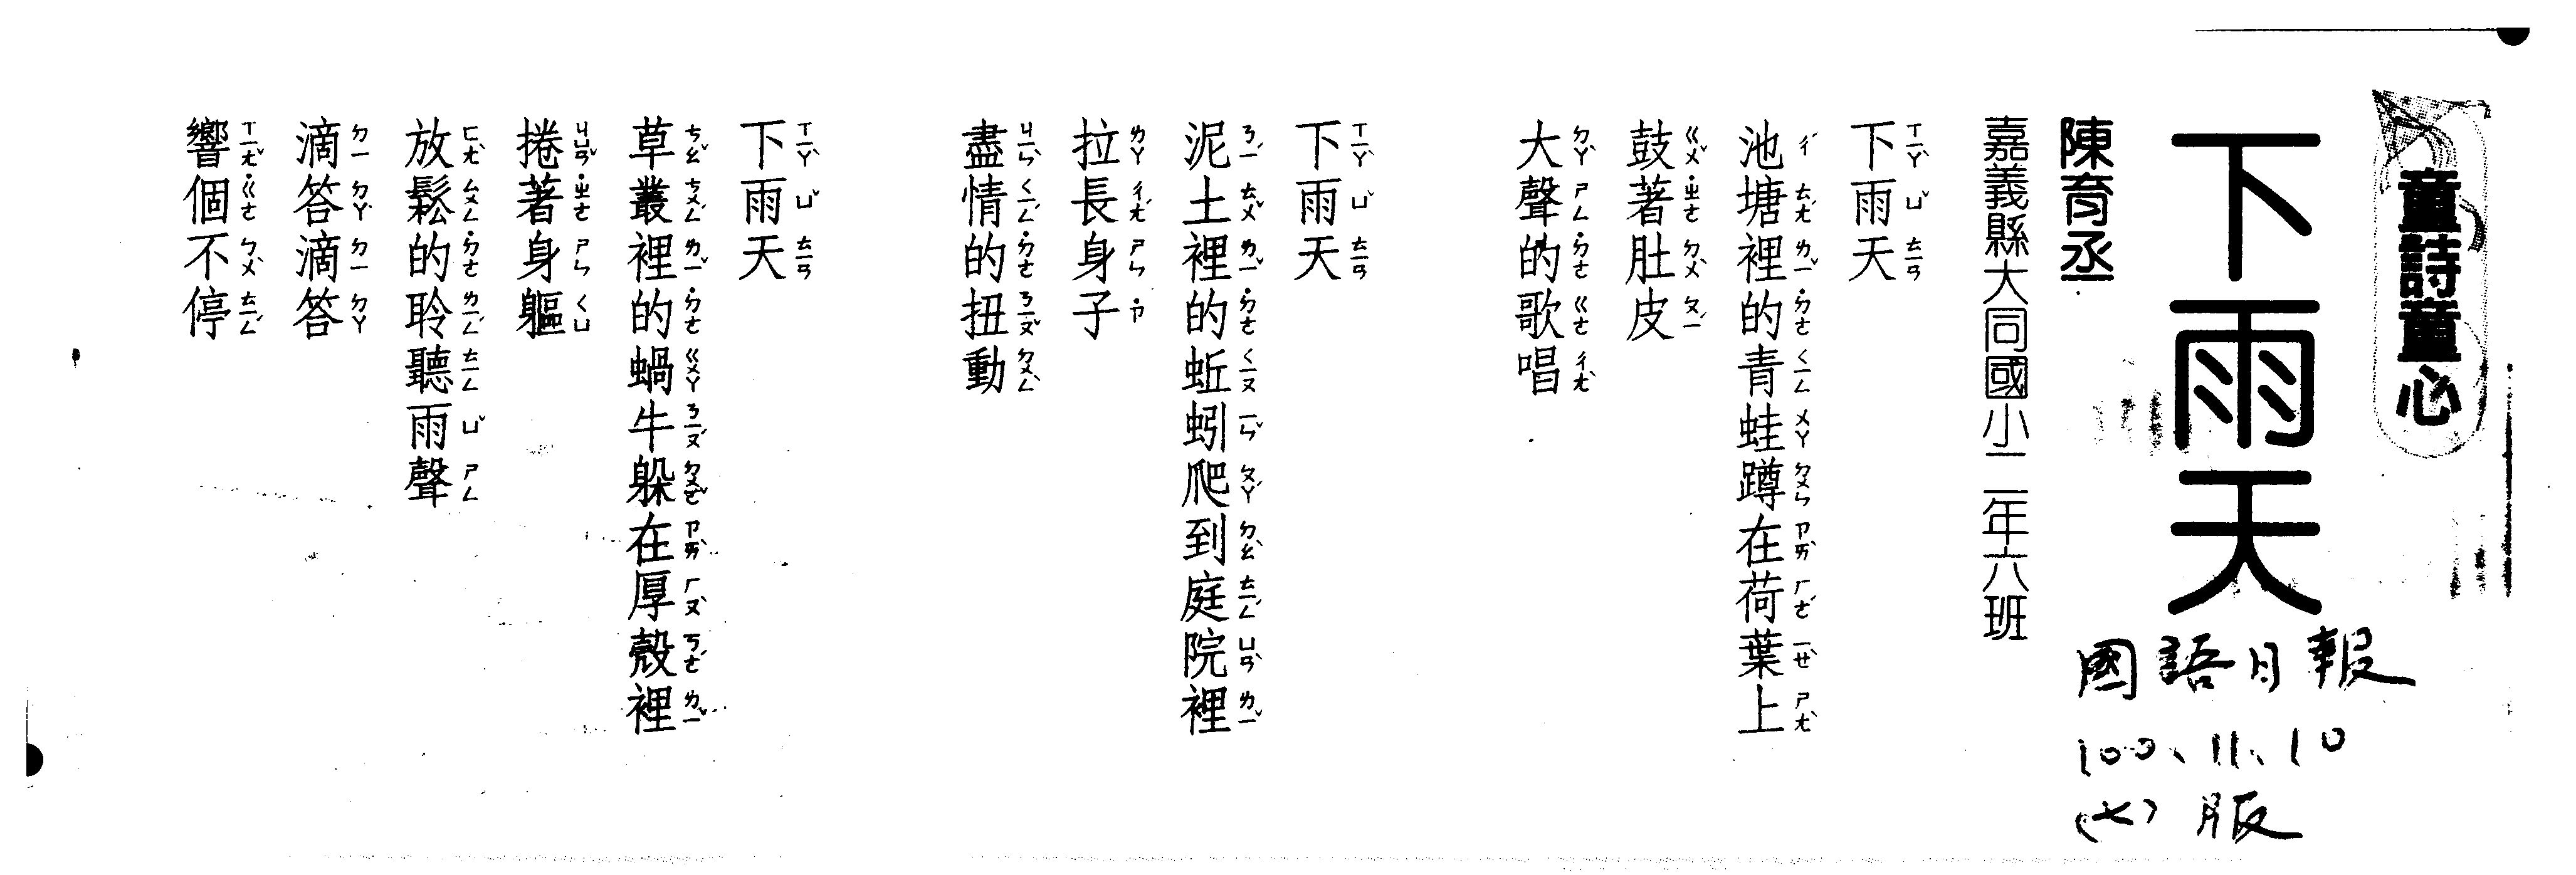 童詩童心
下雨天
陳育丞
嘉義縣大同國小二年六班
國語日報
100、11、10
(七)版
下雨天
池塘裡的青蛙蹲在荷葉上
鼓著肚皮
大聲的歌唱
下雨天
泥土裡的蚯蚓爬到庭院裡
拉長身子
盡情的扭動
下雨天
草叢裡的蝸牛躲在厚殼裡
捲著身軀
放鬆的聆聽雨聲
滴答滴答
響個不停